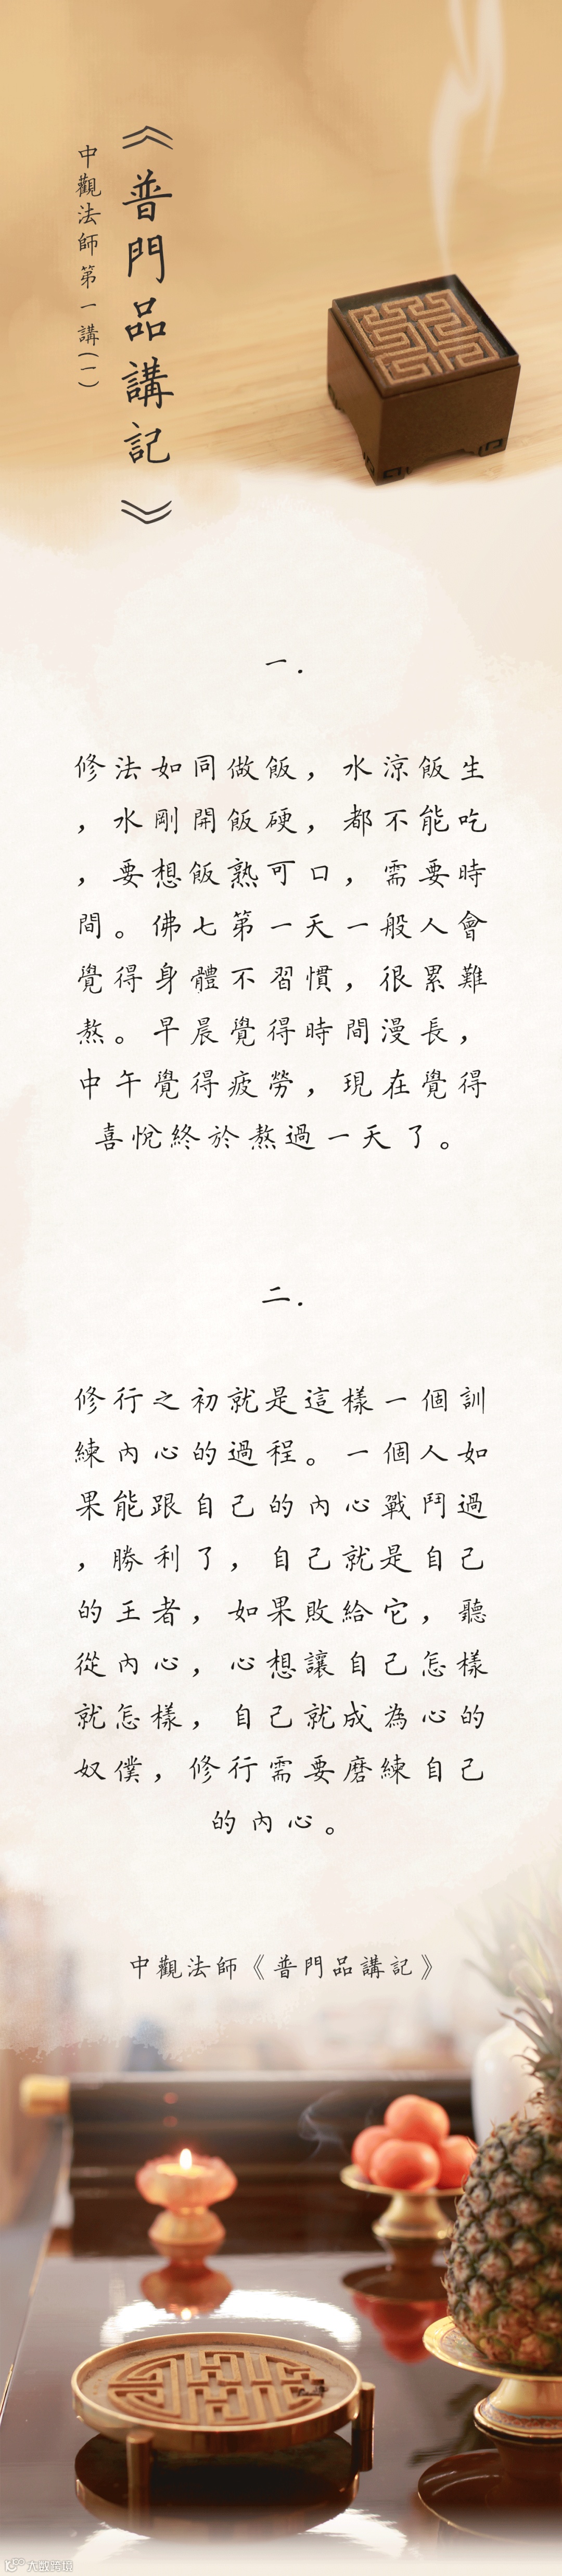 《普門品講記》
中觀法師第一講(一)
一.
修法如同做飯，水涼飯生
，水剛開飯硬，都不能吃
，要想飯熟可口，需要時
間。佛七第一天一般人會
覺得身體不習慣，很累難
熬。早晨覺得時間漫長，
中午覺得疲勞，現在覺得
喜悅終於熬過一天了。
二.
修行之初就是這樣一個訓
練內心的過程。一個人如
果能跟自己的內心戰鬥過
，勝利了，自己就是自己
的王者，如果敗給它，聽
從內心，心想讓自己怎樣
就怎樣，自己就成為心的
奴僕，修行需要磨練自己
的內心。
中觀法師《普門品講記》
大數跨境